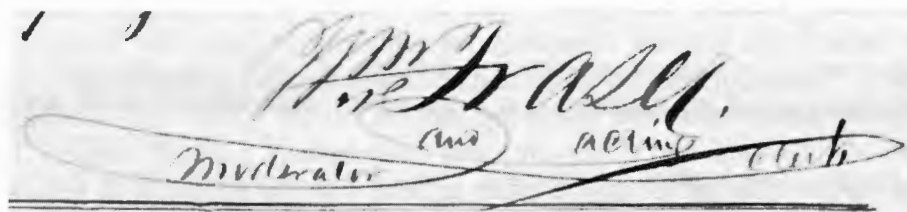 Wm Fraser.
Moderator and acting clerk